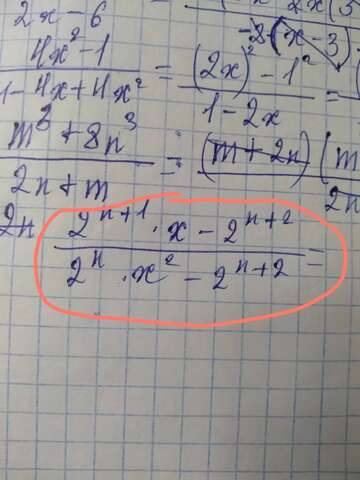 2x-6
-8(x-3)
4x²-1 / 1-4x+4x² = (2x)²-1² / 1-2x =
m³+8n³ / 2n+m = (m+2n)(m
2n
2ⁿ⁺¹·x-2ⁿ⁺² / 2ⁿ·x²-2ⁿ⁺² =